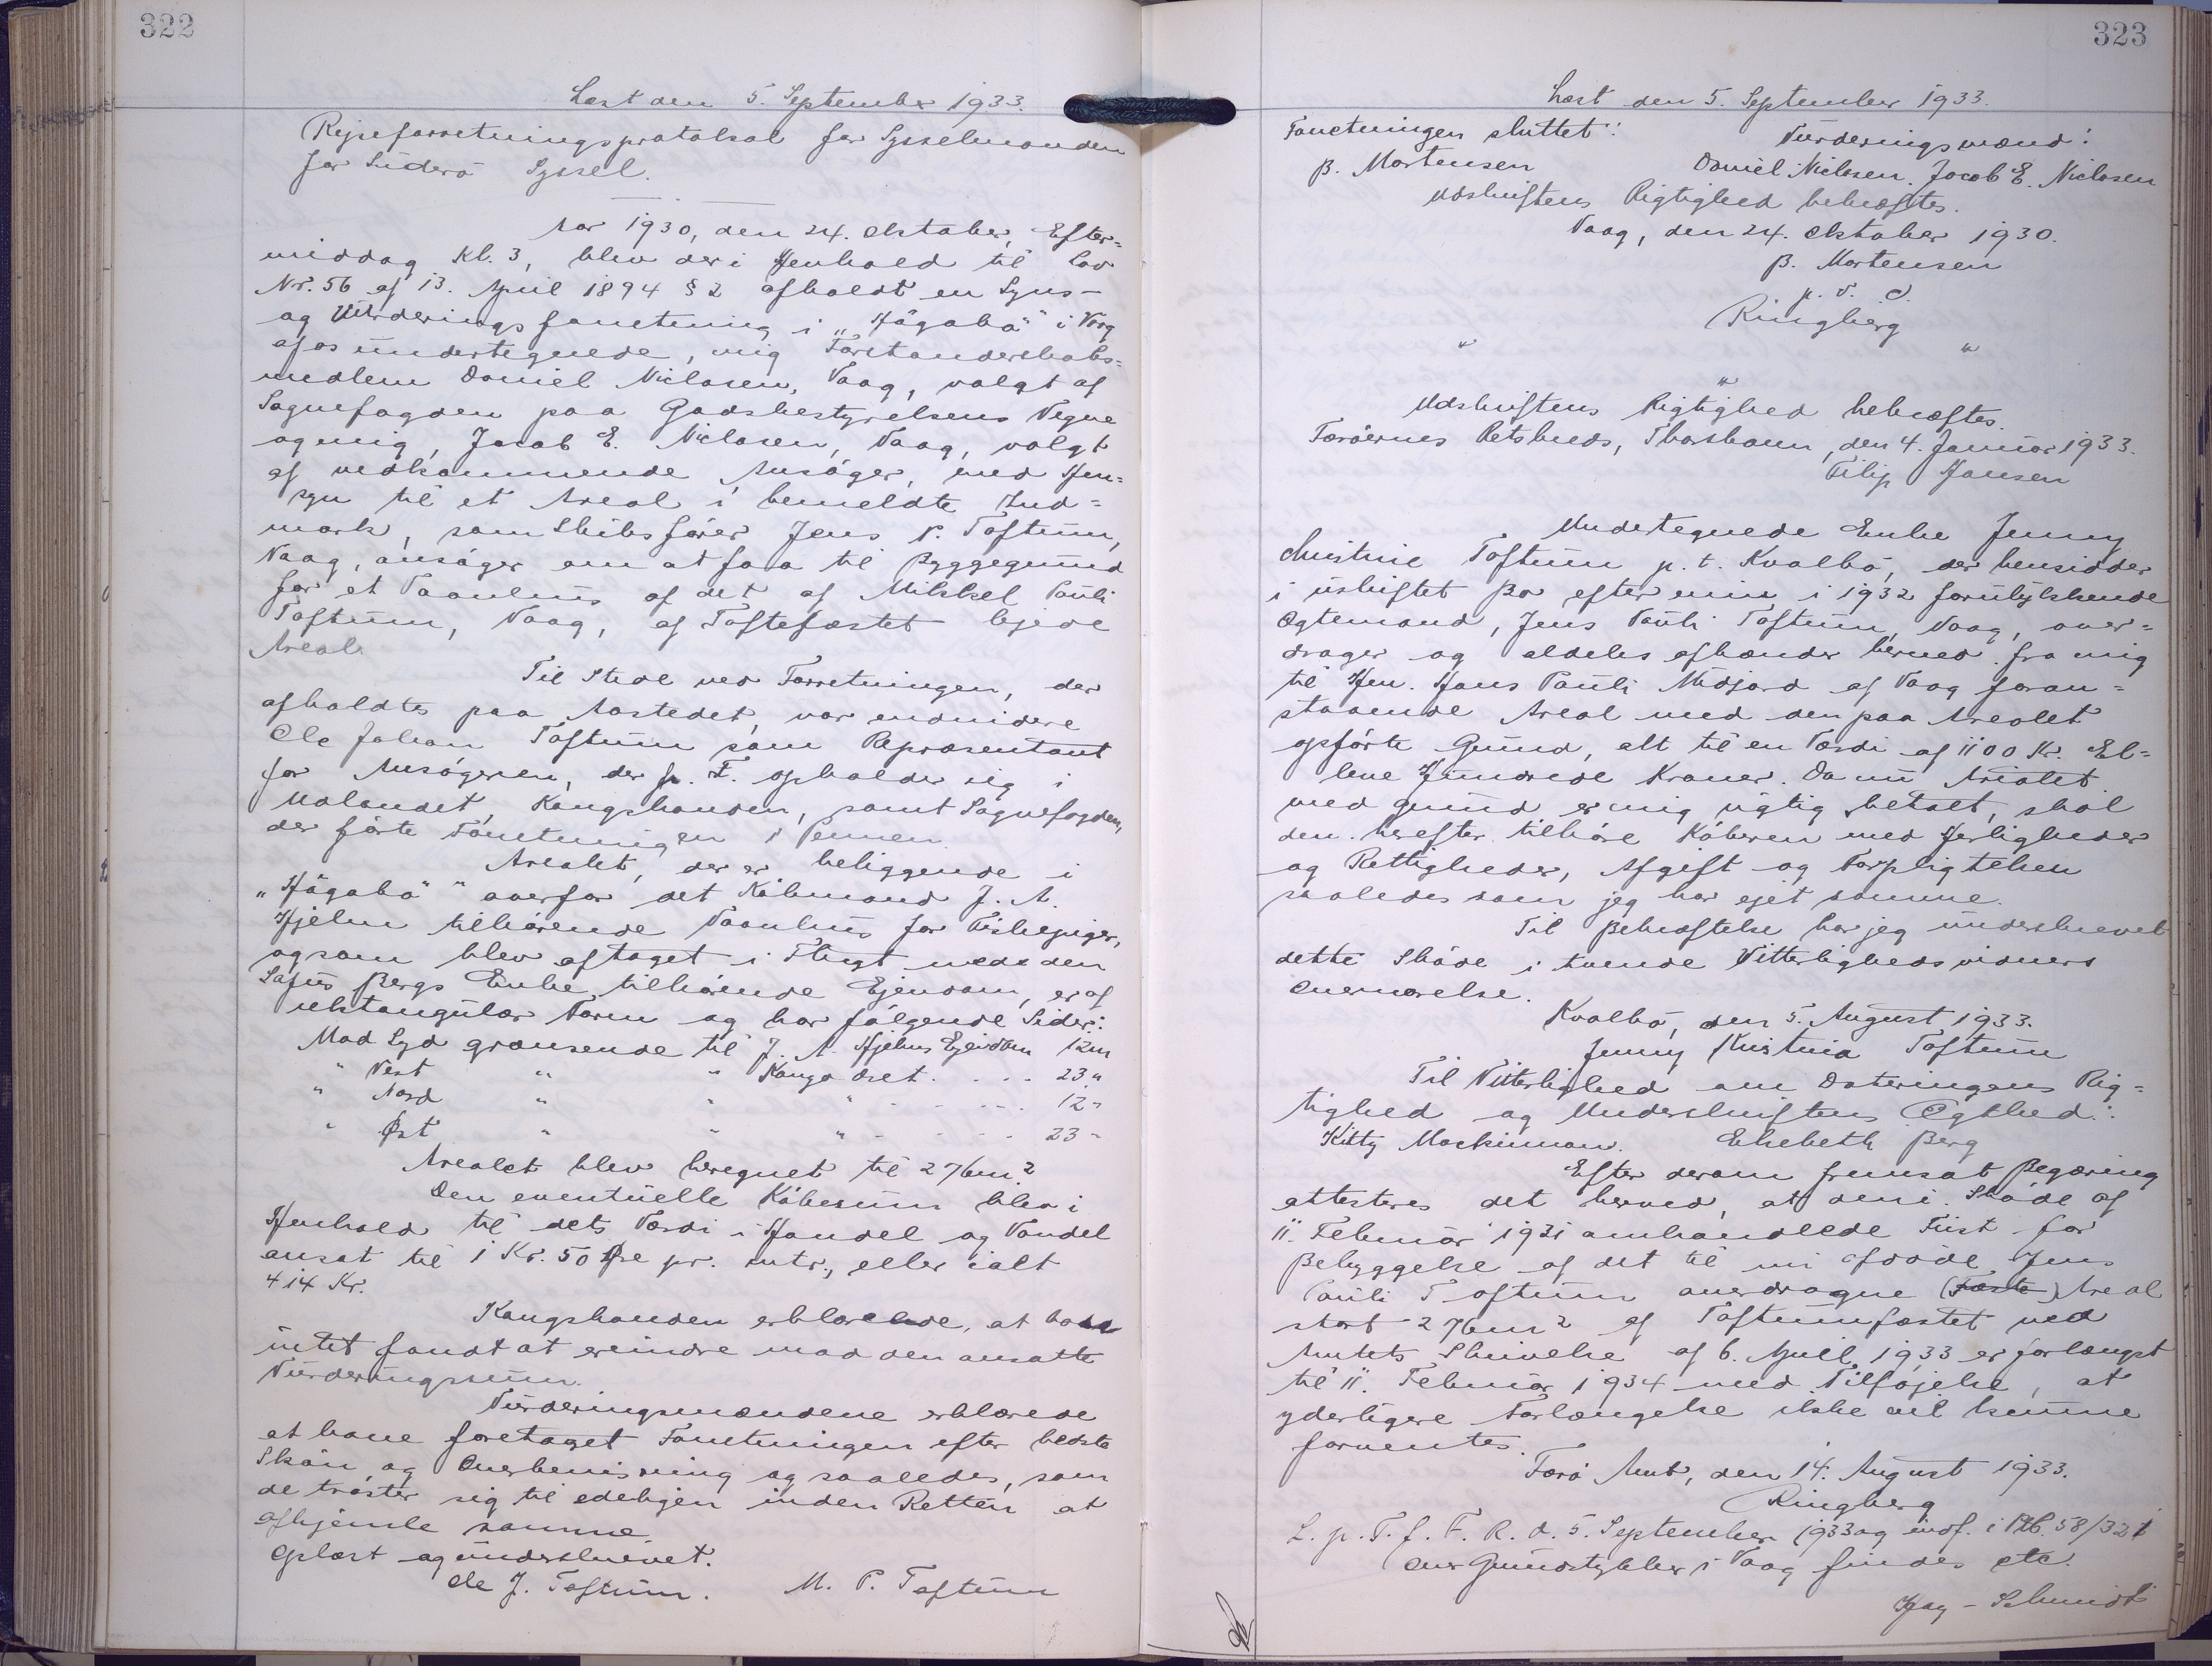 322
Læst den 5. September 1933.
Rejseforretningsprotokol for Sysselmanden
for Suderö Syssel.
Aar 1930, den 24. Oktober, Efter=
middag Kl. 3, blev der i Henhold til Lov
Nr. 56 af 13. April 1894 § 2 afholdt en Syns-
og Vurderingsforretning i "Högabö" i Vaag
af os undertegnede, mig Forstanderskabs=
medlem Daniel Niclasen, Vaag, valgt af
Sognefogden paa Godsbestyrelsens Vegne
og mig, Jacob E. Niclasen, Vaag, valgt
af vedkommende Ansöger, med Hen=
syn til et Areal i bemeldte Ind=
mark, som Skibsförer Jens P. Toftum,
Vaag, ansöger om at faa til Byggegrund
for et Vaanhus af det af Mikkel Pauli
Toftum, Vaag, af Toftefæstet lejede
Areal.
Til Stede ved Forretningen, der
afholdtes paa Aastedet, var endvidere
Ole Johan Toftum som Repræsentant
for Ansögeren, der p. T. opholder sig i
Udlandet, Kongsbonden, samt Sognefogden,
der förte Forretningen i Pennen.
Arealet, der er beliggende i
"Högabö" overfor det Köbmand J. A.
Hjelm tilhörende Vaanhus for Fiskepiger,
og som blev aftaget i Flugt med den
Sofus Bergs Enke tilhörende Ejendom, er af
rektangulær Form og har fölgende Sider:
Mod Syd grænsende til J. A. Hjelms Ejendom 12m
" Vest " " Kongsö̈det . . . . 23 "
" Nord " " " - - - - . 12 "
" Øst " " " - - - - 23 "
Arealet blev beregnet til 276m².
Den eventuelle Köbesum blev i
Henhold til dets Værdi i Handel og Vandel
ansat til 1 Kr. 50 Øre pr. mtr., eller ialt
414 Kr.
Kongsbonden erklærede, at han
intet fandt at erindre mod den ansatte
Vurderingssum.
Vurderingsmændene erklærede
at have foretaget Forretningen efter bedste
Skön og Overbevisning og saaledes, som
de tröster sig til edeligen inden Retten at
afhjemle samme.
Oplæst og underskrevet.
Ole J. Toftum. M. P. Toftum
323
Læst den 5. September 1933.
Forretningen sluttet: Vurderingsmænd:
B. Mortensen Daniel Niclasen. Jacob E. Niclasen
Udskriftens Rigtighed bekræftes.
Vaag, den 24. Oktober 1930.
B. Mortensen
p. t. c.
Ringberg
" " "
Udskriftens Rigtighed bekræftes.
Færöernes Retskreds, Thorshavn, den 4. Januar 1933.
Filip Hansen
Undertegnede Enke Jenny
Christine Toftum p. t. Kvalbö, der hensidder
i uskiftet Bo efter min i 1932 forulykkende
Ægtemand, Jens Pauli Toftum, Vaag, over=
drager og aldeles afhænder herved fra mig
til Hr. Hans Pauli Midjord af Vaag foran=
staaende Areal med den paa Arealet
opförte Grund, alt til en Værdi af 1100 Kr. El=
leve Hundrede Kroner. Da nu Arealet
med Grund er mig rigtig betalt, skal
den herefter tilhöre Köberen med Herligheder
og Rettigheder, Afgift og Forpligtelsen
saaledes som jeg har ejet samme.
Til Bekræftelse har jeg underskrevet
dette Sköde i tvende Vitterlighedsvidners
Overværelse.
Kvalbö, den 5. August 1933.
Jenny Kristina Toftum
Til Vitterlighed om Dateringens Rig=
tighed og Underskriftens Ægthed:
Kitty Mackinnon. Elsebeth Berg
Efter derom fremsat Begæring
attesteres det herved, at den i Sköde af
11. Februar 1931 omhandlede Frist for
Bebyggelse af det til nu afdöde Jens
Pauli Toftum overdragne (Fæste) Areal
stort 276m² af Toftumfæstet ved
Amtets Skrivelse af 6. April 1933 er forlænget
til 11. Februar 1934 med Tilföjelse, at
yderligere Forlængelse ikke vil kunne
forventes.
Færö Amt, den 14. August 1933.
Ringberg
L. p. T. f. F. R. d. 5. September 1933 og indf. i Ptb. 58/322
Over Grundstykker i Vaag findes etc.
Kay-Schmidt